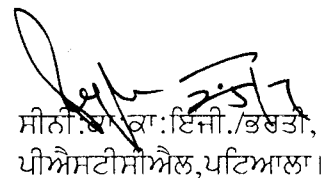 ਸੀਨੀ:ਕਾ:ਕਾ:ਇੰਜੀ./ਭਰਤੀ,
ਪੀਐਸਟੀਸੀਐਲ,ਪਟਿਆਲਾ।